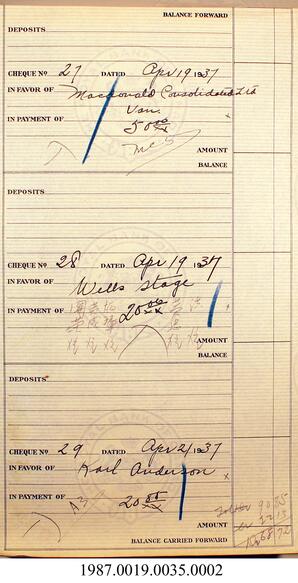 BALANCE FORWARD
DEPOSITS
CHEQUE No 27 DATED Apr 19 1937
IN FAVOR OF Macdonald Consolidated Ltd
Van.
IN PAYMENT OF 50 00/xx
AMOUNT
BALANCE
DEPOSITS
CHEQUE No 28 DATED Apr 19 1937
IN FAVOR OF Wells Stage
IN PAYMENT OF 20 00/xx
AMOUNT
BALANCE
DEPOSITS
CHEQUE No 29 DATED Apr 21 1937
IN FAVOR OF Karl Anderson
IN PAYMENT OF 20
AMOUNT
BALANCE CARRIED FORWARD
1987.0019.0035.0002